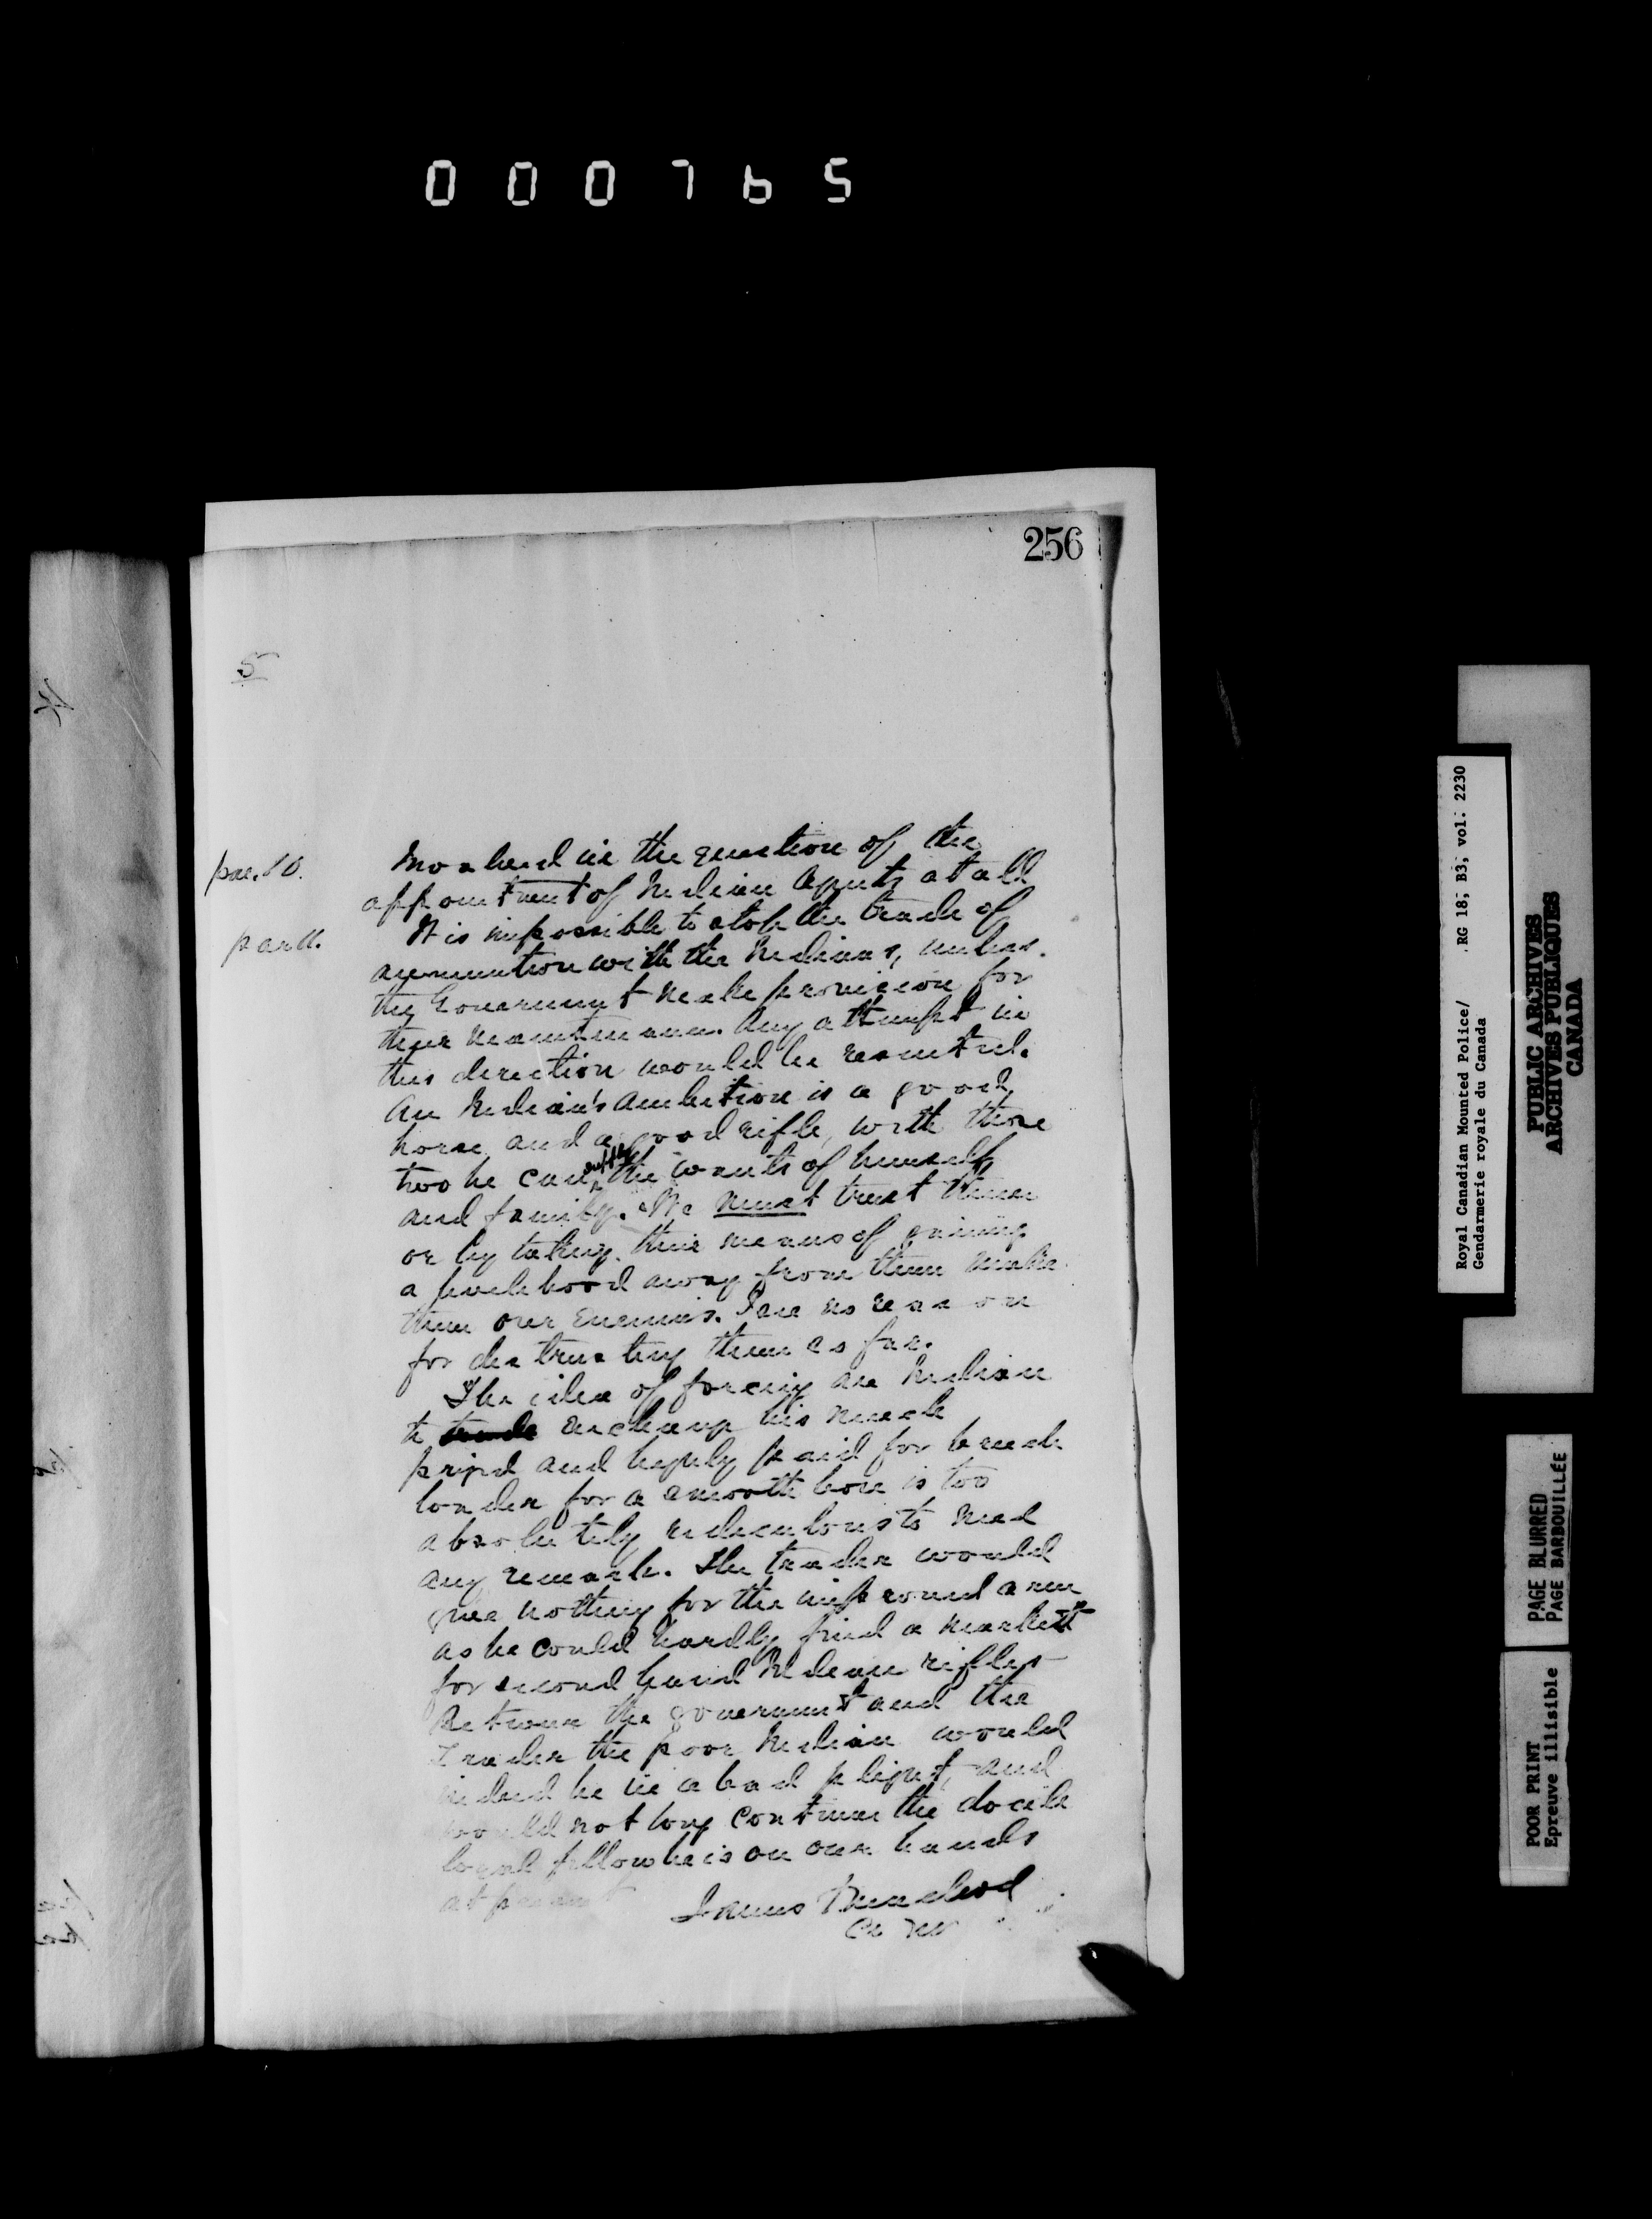 000765
256
5
par. 10.
involved in the question of the
appointment of Indian Agents at all
par 11.
It is impossible to stop the trade of
ammunition with the Indians, unless
the Government make provision for
their maintenance. Any attempt in
this direction would be resented.
An Indian's ambition is a good
horse and a good rifle, with these
two he can supply the wants of himself
and family. We must trust them
or by taking their means of gaining
a livelihood away from them make
them our enemies. I see no reason
for distrusting them so far.
The idea of forcing an Indian
to trade exchange his much
prized and highly paid for breech
loader for a smooth bore is too
absolutely rediculous to need
any remark. The trader would
give nothing for the improved arm
as he could hardly find a market
for second hand Indian rifles
Between the government and the
Trader the poor Indian would
indeed be in a bad plight, and
would not long continue the docile
loyal fellow he is on our hands
at present
James Macleod
Royal Canadian Mounted Police/ RG 18; B3; vol. 2230
Gendarmerie royale du Canada
PUBLIC ARCHIVES
ARCHIVES PUBLIQUES
CANADA
PAGE BLURRED
PAGE BARBOUILLÉE
POOR PRINT
Epreuve illisible